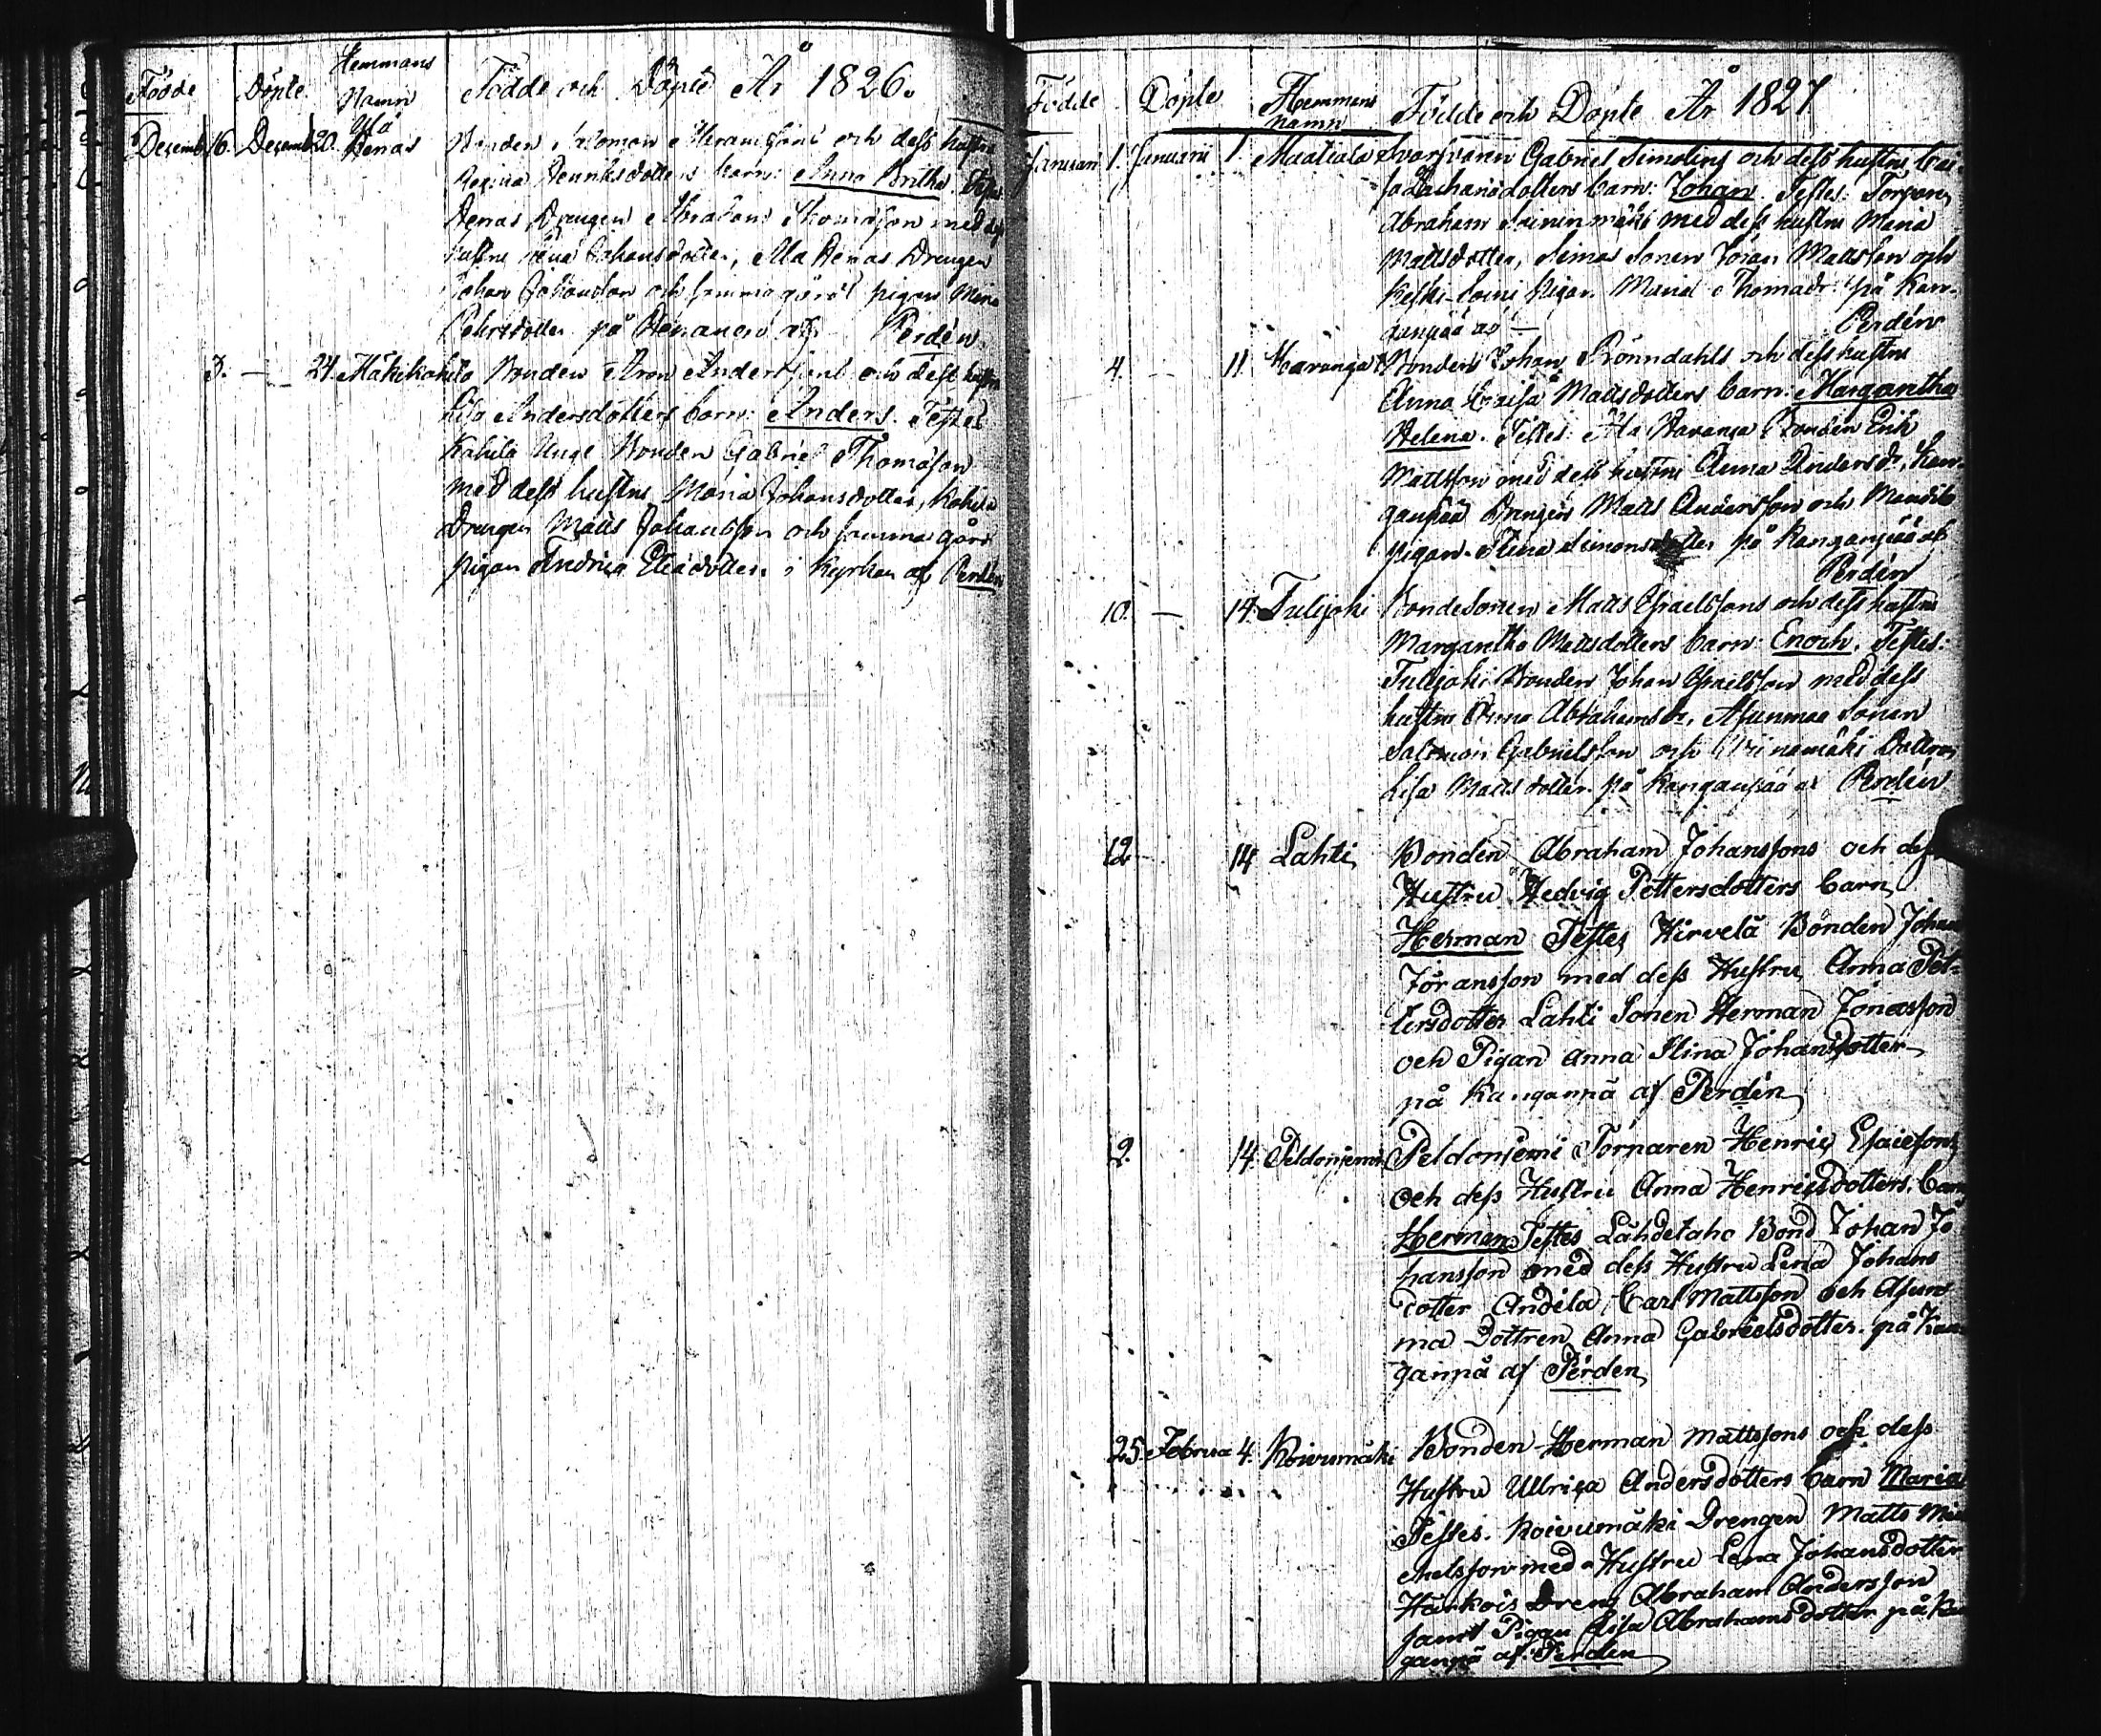 Hemmans
Födde Döpte Namn Födde och Döpte År 1826.
Decemb. 16. Decemb. 20. Renas Bonden Salomon och dess hustru
Regina Henriksdotters barn: Anna Britha. Testes
Renas Drengen Thomasson med dess
hustru Johansdotter, Ala Renas Drengen
Johan Johansson och samma gård pigan
Pehrsdotter på af Perdén.
3. — 24. Mäkikahila Bonden Aron Anderssons och dess hustru
Lisa Andersdotters barn: Anders. Testes
Kahila Unge Bonden Gabriel Thomasson
med dess hustru Maria Johansdotter, Kahila
Drengen Matts Johansson och samma gård
pigan i kyrkan af Perdén
Födde Döpte Hemmans namn Födde och Döpte År 1827
Januari 1. Januarii 1. Maatiala Gabriel Simelins och dess hustru Cai-
sa Zachariædotters barn: Johan. Testes: Torparen
Abraham med dess hustru Maria
Mattsdotter, Sonen Jöran Mattsson och
Keski- pigan Maria Thomædr: på Kan-
ganpää af — Perdén
4. — 11. Havanga Bonden Johan Rönndahls och dess hustru
Anna Caisa Mattsdotters barn: Margaretha
Helena. Testes: Ala Havanga Bonden Erik
Mattsson med dess hustru Anna Andersdr, Kan-
ganpää Drengen Matts Andersson och
pigan Stina Simonsdotter på Kanganpää af
Perdén
10. — 14. Tulijoki Bondesonen Matts Israelssons och dess hustru
Margaretha Mattsdotters barn: Enoch. Testes:
Tulijoki Bonden Johan Israelsson med dess
hustru Anna Abrahamsdr, Asunmaa Sonen
Salomon Gabrielsson och Dottren
Lisa Mattsdotter på Kanganpää af Perdén
12 14 Lahti Bonden Abraham Johanssons och dess
Hustru Hedvig Pettersdotters barn
Herman Testes Hirvelä Bonden Johan
Jöransson med dess Hustru Anna Pet-
tersdotter Lahti Sonen Herman Jonasson
och Pigan Anna Stina Johansdotter
på Kanganpä af Perdén
9. 14. Peldoniemi Peldoniemi Torparen Henric Esaiesons
och dess Hustru Anna Henricsdotters. barn
Herman. Testes Lähdetaho Bond Johan Jo
hansson med dess Hustru Lena Johans
dotter Andila Carl Mattsson och Asun
ma Dottren Anna Gabrielsdotter. på Kan-
ganpä af Perden
25. Februa 4. Koivumäki Bonden Herman Mattssons och dess
Hustru Ullrica Andersdotters barn Maria
Testes. Koivumäki Drengen Matts Mi
chelsson med Hustru Lena Johansdotter
Härköis Dreng Abraham Andersson
samt Pigan Lisa Abrahamsdotter på Kan
ganpä af Perden